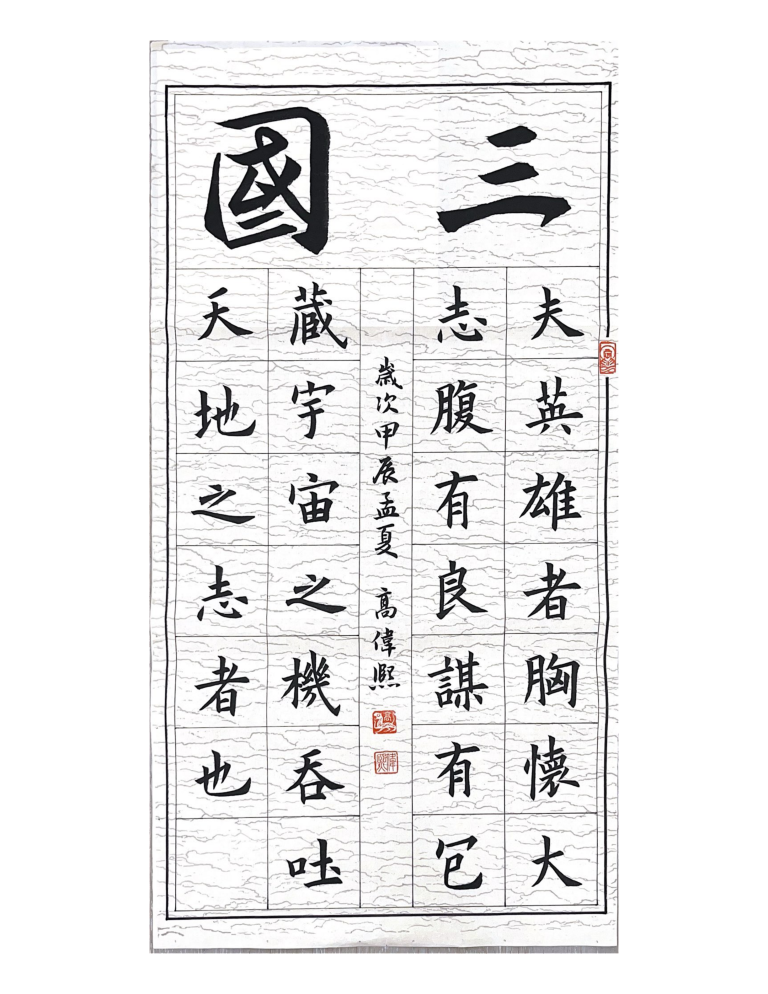 三國
夫英雄者胸懷大
志腹有良謀有包
蔵宇宙之機吞吐
天地之志者也
歲次甲辰孟夏 高偉熙